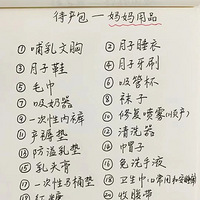 待产包—妈妈用品
① 哺乳文胸 ② 月子睡衣
③ 月子鞋 ④ 月子牙刷
⑤ 毛巾 ⑥ 吸管杯
⑦ 吸奶器 ⑧ 袜子
⑨ 一次性内裤 ⑩ 修复喷雾
⑪ 产褥垫 ⑫ 清洗器
⑬ 防溢乳垫 ⑭ 帽子
⑮ 乳头膏 ⑯ 免洗手液
⑰ 一次性马桶垫 ⑱ 卫生巾
⑲ 红糖 ⑳ 收腹带